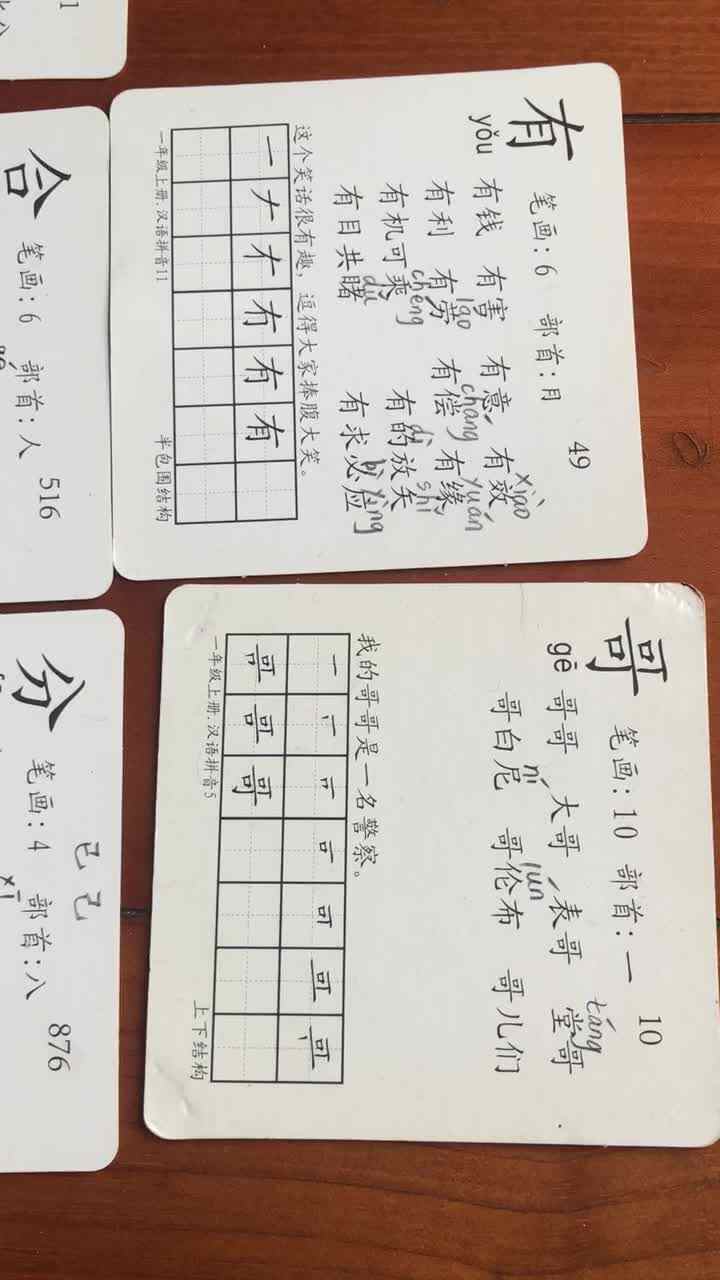 有 笔画:6 部首:月 49
yǒu 有钱 有害 有意 有效
xiào
有利 有劳 有偿 有缘
lǎo cháng yuán
有机可乘 有的放矢
chéng dì shǐ
有目共睹 有求必应
dǔ bì yìng
这个笑话很有趣,逗得大家捧腹大笑。
一年级上册.汉语拼音11 半包围结构
哥 笔画:10 部首:一 10
gē 哥哥 大哥 表哥 堂哥
táng
哥白尼 哥伦布 哥儿们
ní lún
我的哥哥是一名警察。
一年级上册.汉语拼音5 上下结构
合 笔画:6 部首:人 516
分 笔画:4 部首:八 876
己己